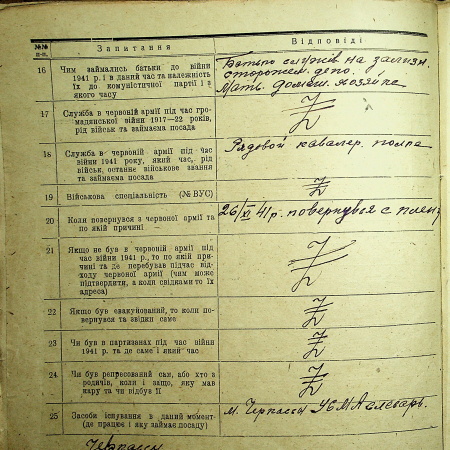 №№ п-п.
Запитання
Відповіді
16
Чим займались батьки до війни
1941 р. і в даний час та належність
їх до комуністичної партії і з
якого часу
Батько служив на залізн.
сторожем депо.
Мать домаш. хозяйка
17
Служба в червоній армії під час гро-
мадянської війни 1917—22 років,
рід військ та займаєма посада
Z
18
Служба в червоній армії під час
війни 1941 року, який час, рід
військ, останнє військове звання
та займаєма посада
Рядовой кавалер. полка
19
Військова спеціяльність (№ ВУС)
Z
20
Коли повернувся з червоної армії та
по якій причині
26/XI 41 р. повернувся с плену
21
Якщо не був в червоній армії під
час війни 1941 р., то по якій при-
чині та де перебував підчас від-
ходу червоної армії (чим може
підтвердити, а коли свідками то їх
адреса)
Z
22
Якщо був евакуйований, то коли по-
вернувся та звідки саме
Z
23
Чи був в партизанах під час війни
1941 р. та де саме і який час
Z
24
Чи був репресований сам, або хто з
родичів, коли і защо, яку мав
кару та чи відбув її
Z
25
Засоби існування в даний момент
(де працює і яку займає посаду)
м. Черкассы слесарь.
Черкассы